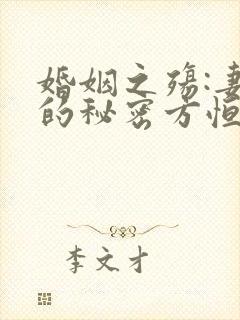 婚姻之殇:妻
的秘密方恒
李文才